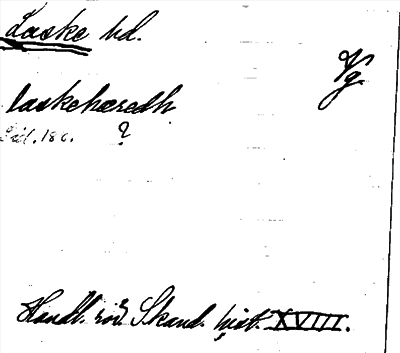 Laske hd.
Vg.
laskehæredh
Sid. 186. ?
Handl. rör. Skand. hist. XVIII.